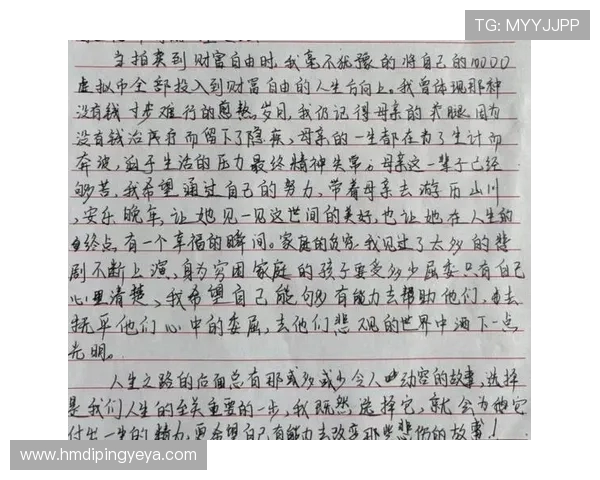 TG: MYYJJPP
当拍卖到财富自由时,我毫不犹豫的将自己的10000
虚拟币全部投入到财富自由的人生方向上。我曾体现那种
没有钱寸步难行的煎熬岁月,我仍记得母亲的 腿因有
没有钱治疗而留下了隐疾,母亲的一生都在为了生计而
奔波,迫于生活的压力最终精神失常。母亲这一辈子已经
够苦,我希望通过自己的努力,带着母亲去游历山川
,安乐晚年,让她见一见这世间的美好,也让她在人生的
终点有一个幸福的瞬间。家庭的贫穷,我见过了太多的悲
剧不断上演,身为穷困家庭的孩子要受多少屈委只有自己
心里清楚,我希望自己能够有能力去帮助他们,去
抚平他们心中的委屈,去他们悲观的世界中洒下一点
光明。
人生之路的后面总有那或多或少令人动容的故事,选择
是我们人生的至关重要的一步,我既然选择它,就会为他它
付出一生的精力,更希望自己有能力去改变那些悲伤的故事!
www.hmdipingyeya.com